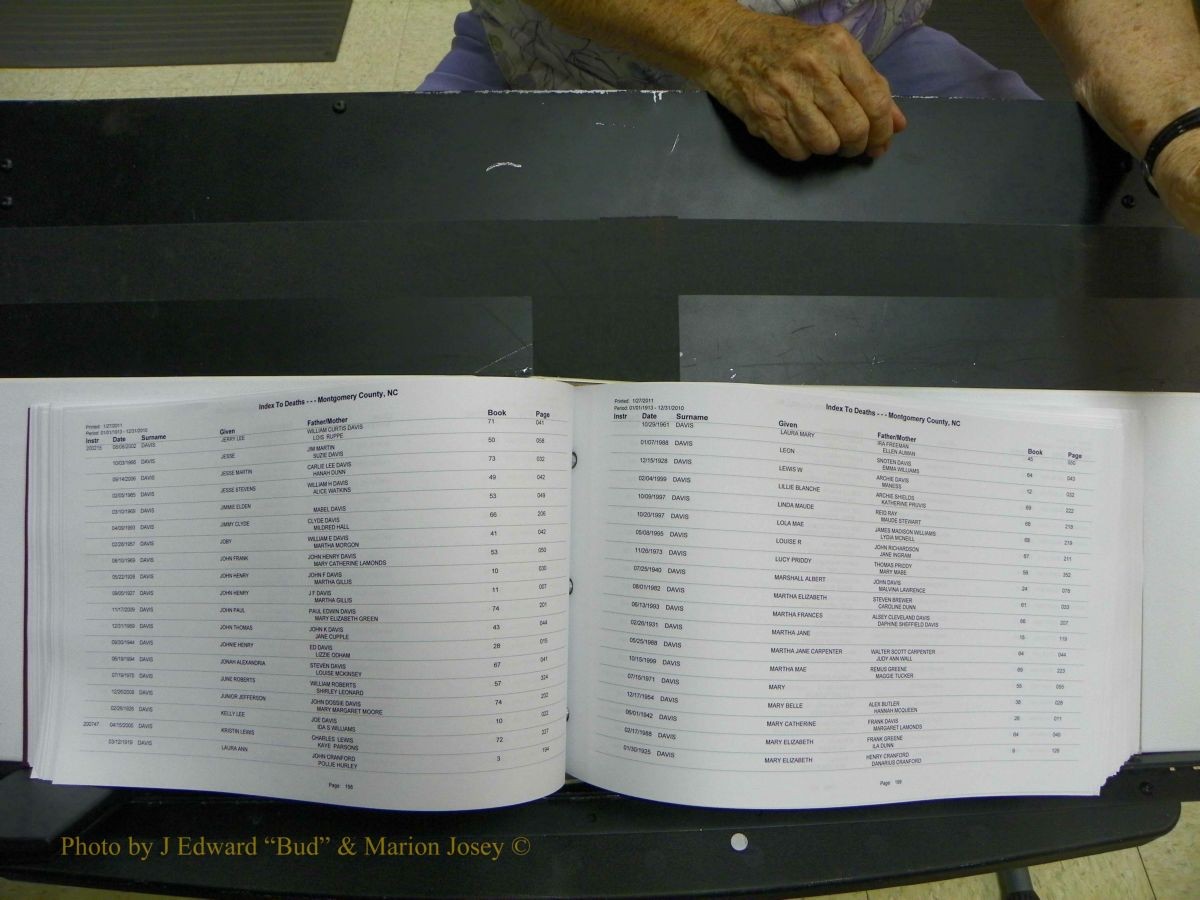 Index To Deaths - - - Montgomery County, NC
Printed: 1/27/2011
Period: 01/01/1913 - 12/31/2010
Instr Date Surname Given Father/Mother Book Page
200215 08/08/2002 DAVIS JERRY LEE WILLIAM CURTIS DAVIS 71 041
LOIS RUPPE
10/03/1966 DAVIS JESSE JIM MARTIN 50 058
SUZIE DAVIS
09/14/2006 DAVIS JESSE MARTIN CARLIE LEE DAVIS 73 032
HANAH DUNN
02/05/1965 DAVIS JESSE STEVENS WILLIAM H DAVIS 49 042
ALICE WATKINS
03/10/1969 DAVIS JIMMIE ELDEN 53 049
MABEL DAVIS
04/09/1993 DAVIS JIMMY CLYDE CLYDE DAVIS 66 206
MILDRED HALL
02/26/1957 DAVIS JOBY WILLIAM E DAVIS 41 042
MARTHA MORGON
06/10/1969 DAVIS JOHN FRANK JOHN HENRY DAVIS 53 050
MARY CATHERINE LAMONDS
05/22/1926 DAVIS JOHN HENRY JOHN F DAVIS 10 030
MARTHA GILLIS
09/05/1927 DAVIS JOHN HENRY J F DAVIS 11 007
MARTHA GILLIS
11/17/2009 DAVIS JOHN PAUL PAUL EDWIN DAVIS 74 201
MARY ELIZABETH GREEN
12/31/1959 DAVIS JOHN THOMAS JOHN K DAVIS 43 044
JANE CUPPLE
09/30/1944 DAVIS JOHNIE HENRY ED DAVIS 28 015
LIZZIE ODHAM
06/19/1994 DAVIS JONAH ALEXANDRIA STEVEN DAVIS 67 041
LOUISE MCKINSEY
07/19/1975 DAVIS JUNE ROBERTS WILLIAM ROBERTS 57 324
SHIRLEY LEONARD
12/26/2009 DAVIS JUNIOR JEFFERSON JOHN DOSSIE DAVIS 74 202
MARY MARGARET MOORE
02/26/1926 DAVIS KELLY LEE JOE DAVIS 10 022
IDA S WILLIAMS
200747 04/15/2005 DAVIS KRISTIN LEWIS CHARLES LEWIS 72 227
KAYE PARSONS
03/12/1919 DAVIS LAURA ANN JOHN CRANFORD 3 194
POLLIE HURLEY
Page 198
Index To Deaths - - - Montgomery County, NC
Printed: 1/27/2011
Period: 01/01/1913 - 12/31/2010
Instr Date Surname Given Father/Mother Book Page
10/29/1961 DAVIS LAURA MARY IRA FREEMAN 45
ELLEN AUMAN
01/07/1988 DAVIS LEON SNOTEN DAVIS 64 043
EMMA WILLIAMS
12/15/1928 DAVIS LEWIS W ARCHIE DAVIS 12 032
MANESS
02/04/1999 DAVIS LILLIE BLANCHE ARCHIE SHIELDS 69 222
KATHERINE PRUVIS
10/09/1997 DAVIS LINDA MAUDE REID RAY 68 218
MAUDE STEWART
10/20/1997 DAVIS LOLA MAE JAMES MADISON WILLIAMS 68 219
LYDIA MCNEILL
05/08/1995 DAVIS LOUISE R JOHN RICHARDSON 67 211
JANE INGRAM
11/26/1973 DAVIS LUCY PRIDDY THOMAS PRIDDY 56 352
MARY MABE
07/25/1940 DAVIS MARSHALL ALBERT JOHN DAVIS 24 078
MALVINA LAWRENCE
08/01/1982 DAVIS MARTHA ELIZABETH STEVEN BREWER 61 033
CAROLINE DUNN
06/13/1993 DAVIS MARTHA FRANCES ALSEY CLEVELAND DAVIS 66 207
DAPHINE SHEFFIELD DAVIS
02/26/1931 DAVIS MARTHA JANE 15 119
05/25/1988 DAVIS MARTHA JANE CARPENTER WALTER SCOTT CARPENTER 64 044
JUDY ANN WALL
10/15/1999 DAVIS MARTHA MAE REMUS GREENE 69 223
MAGGIE TUCKER
07/15/1971 DAVIS MARY 55 055
12/17/1954 DAVIS MARY BELLE ALEX BUTLER 38 028
HANNAH MCQUEEN
06/01/1942 DAVIS MARY CATHERINE FRANK DAVIS 26 011
MARGARET LAMONDS
02/17/1988 DAVIS MARY ELIZABETH FRANK GREENE 64 046
ILA DUNN
01/30/1925 DAVIS MARY ELIZABETH HENRY CRANFORD 9 128
DANARIUS CRANFORD
Page 199
Photo by J Edward “Bud” & Marion Josey ©